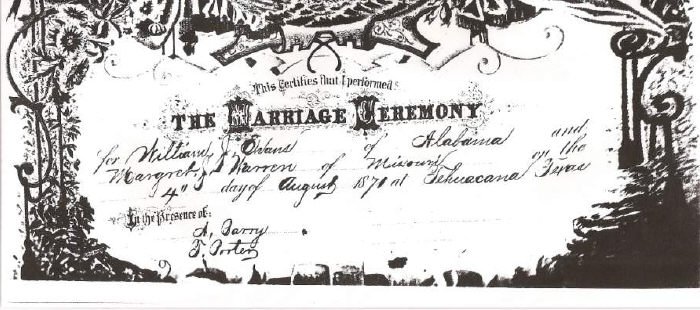 This Certifies that I performed
THE MARRIAGE CEREMONY
for William J Evans of Alabama and
Margret Warren of Missouri on the
4th day of August 1870 at Tehuacana Texas
In the Presence of:
A. Barry
T. Porter